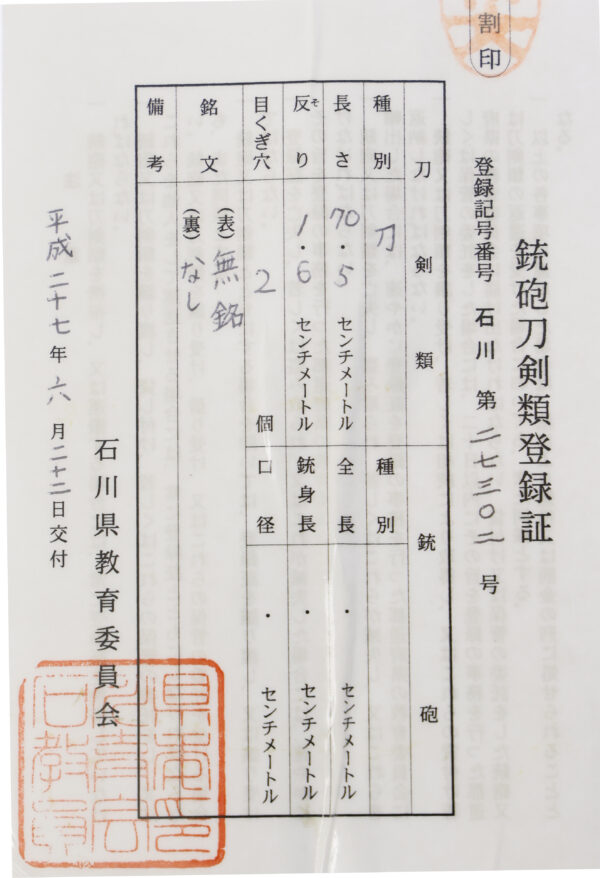 割印
銃砲刀剣類登録証
登録記号番号 石川 第 二七三〇二 号
刀剣類 銃砲
種別 刀 種別
長さ 70・5 センチメートル 全長 ・ センチメートル
反り 1・6 センチメートル 銃身長 ・ センチメートル
そ
目くぎ穴 2 個 口径 ・ センチメートル
銘文 (表) 無銘
(裏) なし
備考
平成二十七年六月二十二日交付
石川県教育委員会